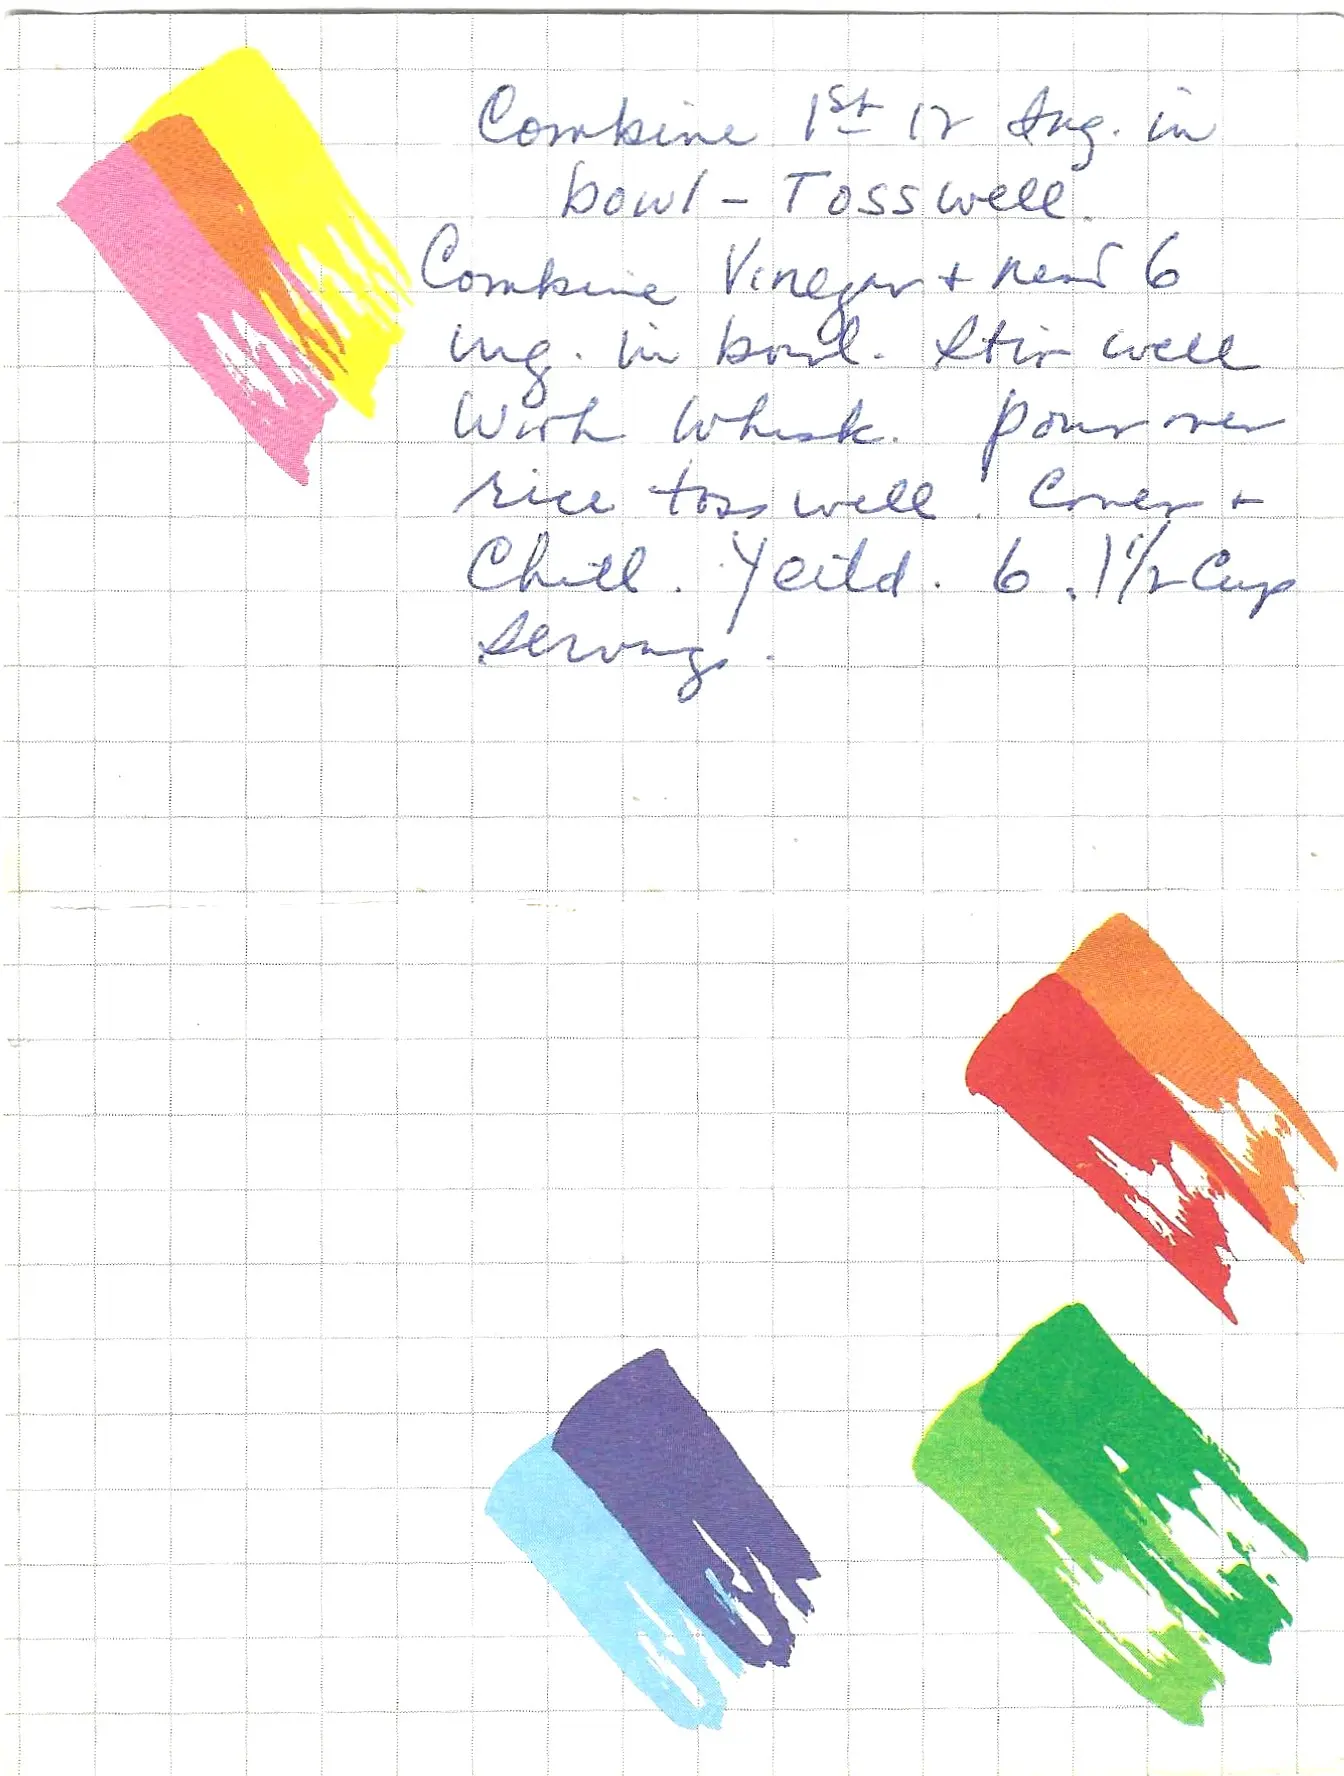 Combine 1st 12 Ing. in
bowl - Toss well.
Combine Vinegar + next 6
ing. in bowl. Stir well
with whisk. pour over
rice toss well. Cover +
Chill. Yeild. 6. 1 1/2 Cup
Servings.